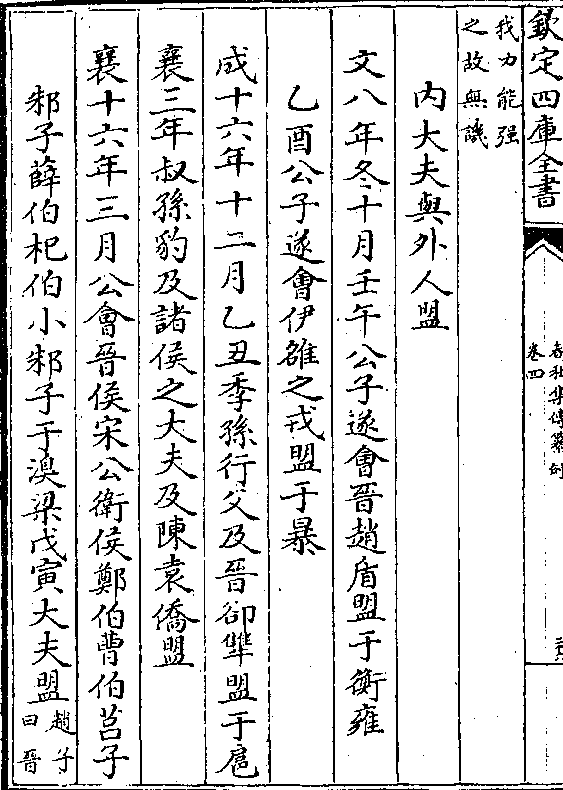 欽定四庫全書
春秋集傳纂例
卷四
我力能强
之故無譏
内大夫與外人盟
文八年冬十月壬午公子遂會晉趙盾盟于衡雍
乙酉公子遂會伊雒之戎盟于暴
成十六年十二月乙丑季孫行父及晉卻犨盟于扈
襄三年叔孫豹及諸侯之大夫及陳袁僑盟
襄十六年三月公會晉侯宋公衛侯鄭伯曹伯莒子
邾子薛伯杞伯小邾子于湨梁戊寅大夫盟
趙子
曰晉